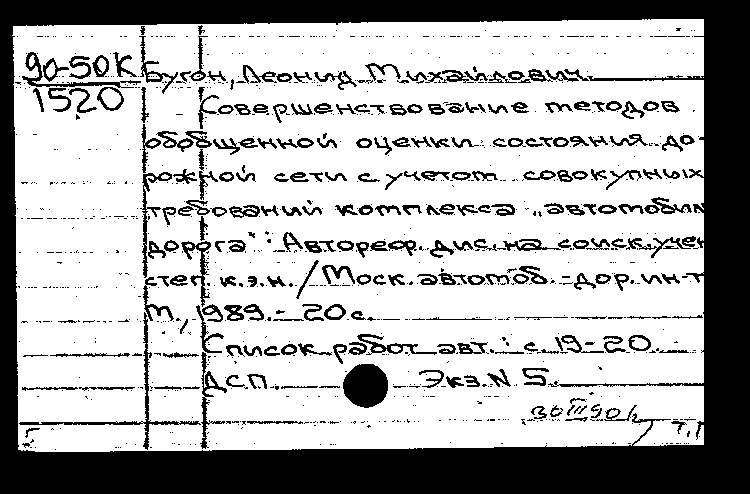 90-50К
1520
Бугон, Леонид Михайлович.
Совершенствование методов
обобщенной оценки состояния до-
рожной сети с учетом совокупных
требований комплекса „автомобил
дорога": Автореф. дис. на соиск. учен
степ. к.э.н. / Моск. автомоб.-дор. ин-т
М., 1989.- 20 с.
Список работ авт.: с. 19-20.
ДСП. Экз. N 5.
30 III 90
Т.